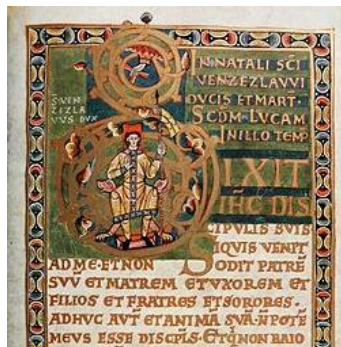 IN NATALI SCI
VENZEZLAVVI
DVCIS ET MART.
SCDM LVCAM
IN ILLO TEMP
S. VEN
ZIZLA
VVS DVX
DIXIT
IHC DIS
CIPVLIS SVIS
SIQVIS VENIT
AD ME ET NON ODIT PATRE
SVV ET MATREM ET VXOREM ET
FILIOS ET FRATRES ET SORORES.
ADHVC AVT ET ANIMA SVA. NPOTE
MEVS ESSE DISCPLS. ET QI NON BAIO